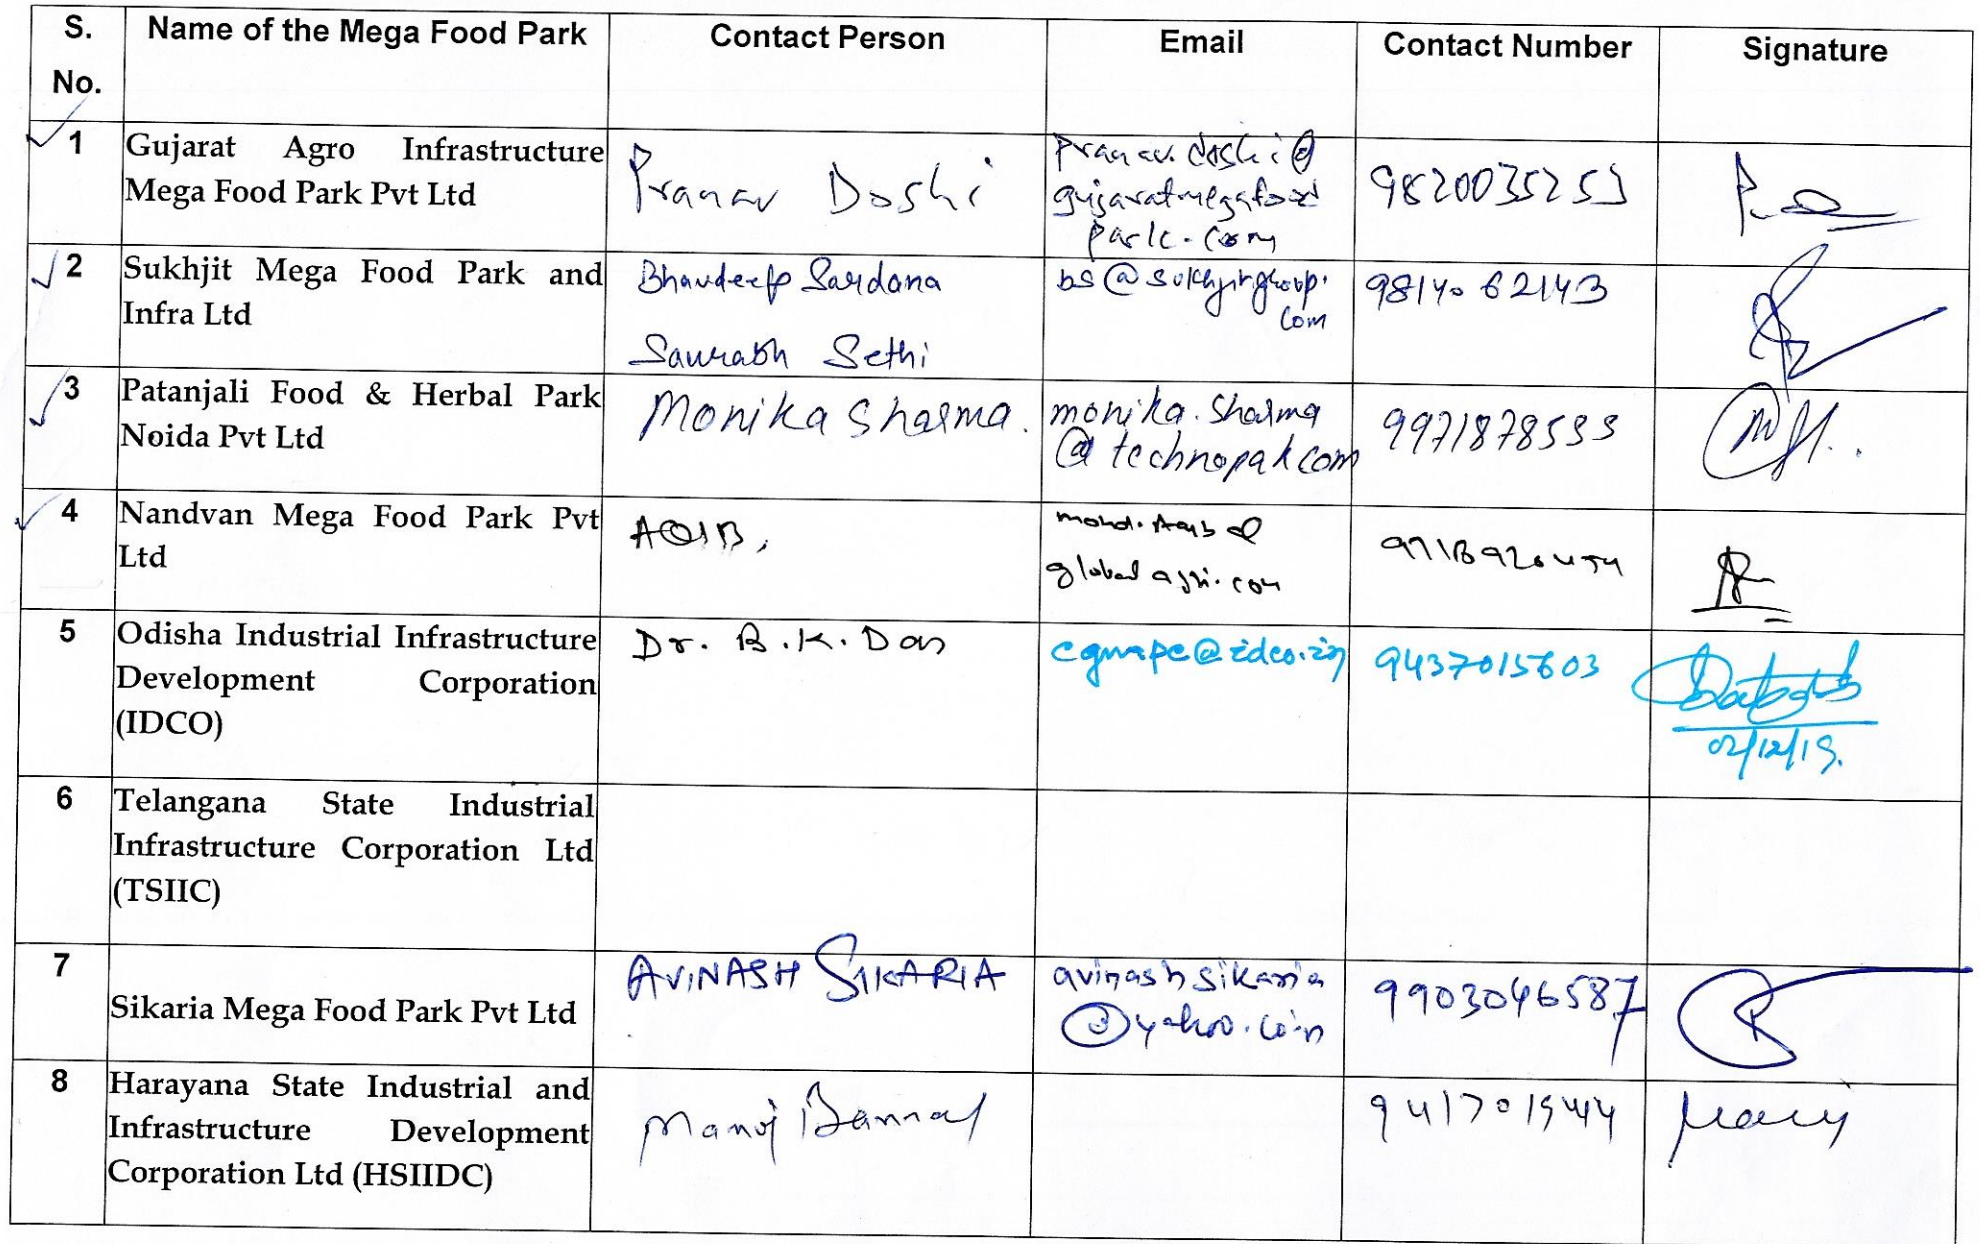 S. No. Name of the Mega Food Park Contact Person Email Contact Number Signature
1 Gujarat Agro Infrastructure Mega Food Park Pvt Ltd
Pranav Doshi
pranav.doshi@
gujaratmegafood
park.com
9820035253
2 Sukhjit Mega Food Park and Infra Ltd
Bhavdeep Sardana
Saurabh Sethi
bs@sukhjitgroup.
com
98140 62143
3 Patanjali Food & Herbal Park Noida Pvt Ltd
Monika Sharma.
monika.sharma
@technopak.com
9971878533
4 Nandvan Mega Food Park Pvt Ltd
AQIB,
mohd.Aqib@
globalagri.com
5 Odisha Industrial Infrastructure Development Corporation (IDCO)
Dr. B.K. Das
cgmapc@idco.in
9437015603
02/12/19.
6 Telangana State Industrial Infrastructure Corporation Ltd (TSIIC)
7 Sikaria Mega Food Park Pvt Ltd
AVINASH SIKARIA
avinashsikaria
@yahoo.co.in
9903046587
8 Harayana State Industrial and Infrastructure Development Corporation Ltd (HSIIDC)
Manoj Bansal